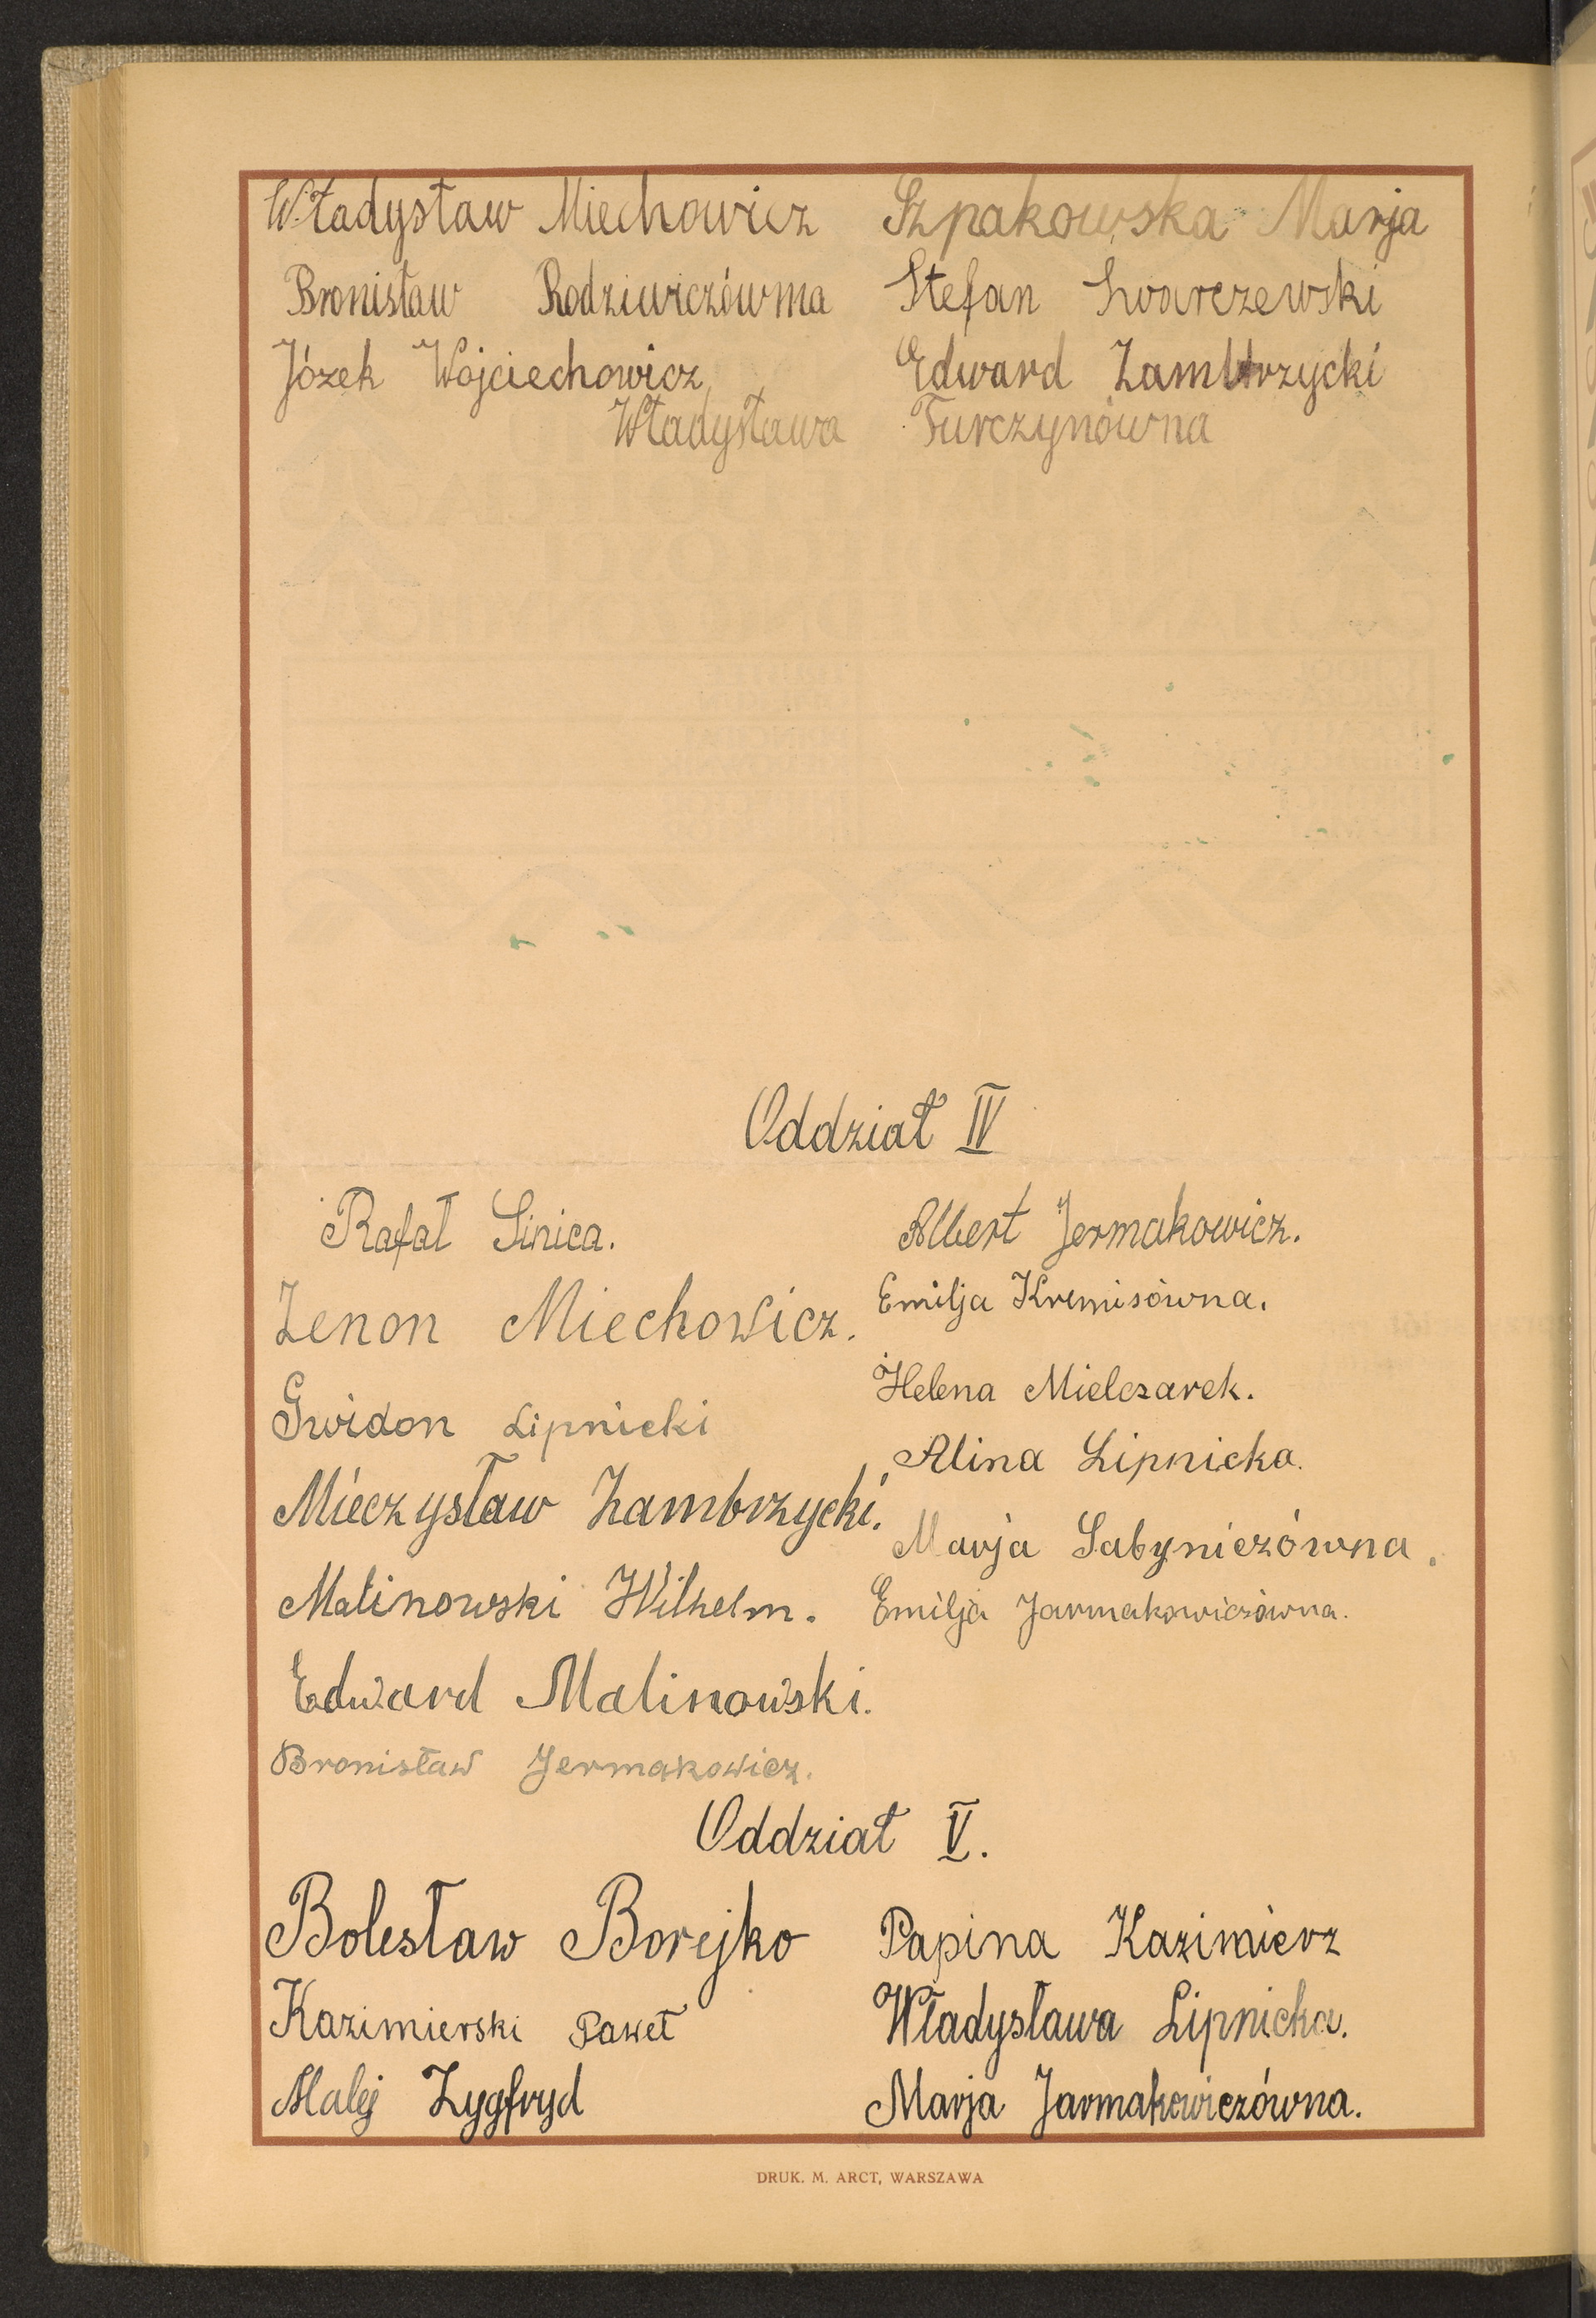 Władysław Miechowicz Szpakowska Marja
Bronisław Rodziewiczówma Stefan Swarczewski
Józek Wojciechowicz Edward Zambrzycki
Władysława Turczynówna
Oddział IV
Rafał Sinica. Albert Jermakowicz.
Zenon Miechowicz. Emilja Kremisówna.
Gwidon Lipnicki Helena Mielczarek.
Mieczysław Zambrzycki. Alina Lipnicka.
Malinowski Wilhelm. Marja Sabyniczówna.
Edward Malinowski. Emilja Jarmakowiczówna.
Bronisław Jermakowicz.
Oddział V.
Bolesław Borejko Papina Kazimierz
Kazimierski Paweł Władysława Lipnicka.
Malej Zygfryd Marja Jarmakowiczówna.
DRUK. M. ARCT, WARSZAWA